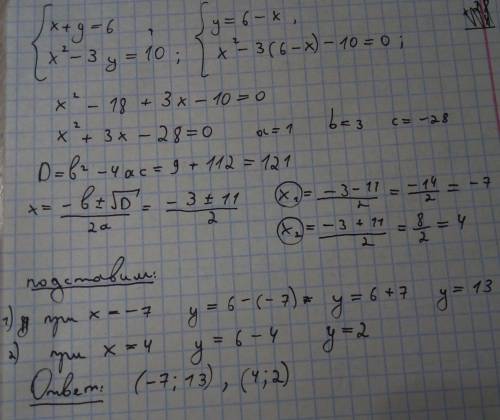 { x + y = 6 , { y = 6 - x ,
{ x² - 3 y = 10 ; { x² - 3(6 - x) - 10 = 0 ;
x² - 18 + 3x - 10 = 0
x² + 3x - 28 = 0 a = 1 b = 3 c = -28
D = b² - 4ac = 9 + 112 = 121
x = (-b ± √D)/2a = (-3 ± 11)/2 x₁ = (-3 - 11)/2 = -14/2 = -7
x₂ = (-3 + 11)/2 = 8/2 = 4
подставим:
1) при x = -7 y = 6 - (-7) = y = 6 + 7 y = 13
2) при x = 4 y = 6 - 4 y = 2
Ответ: (-7; 13) , (4; 2)